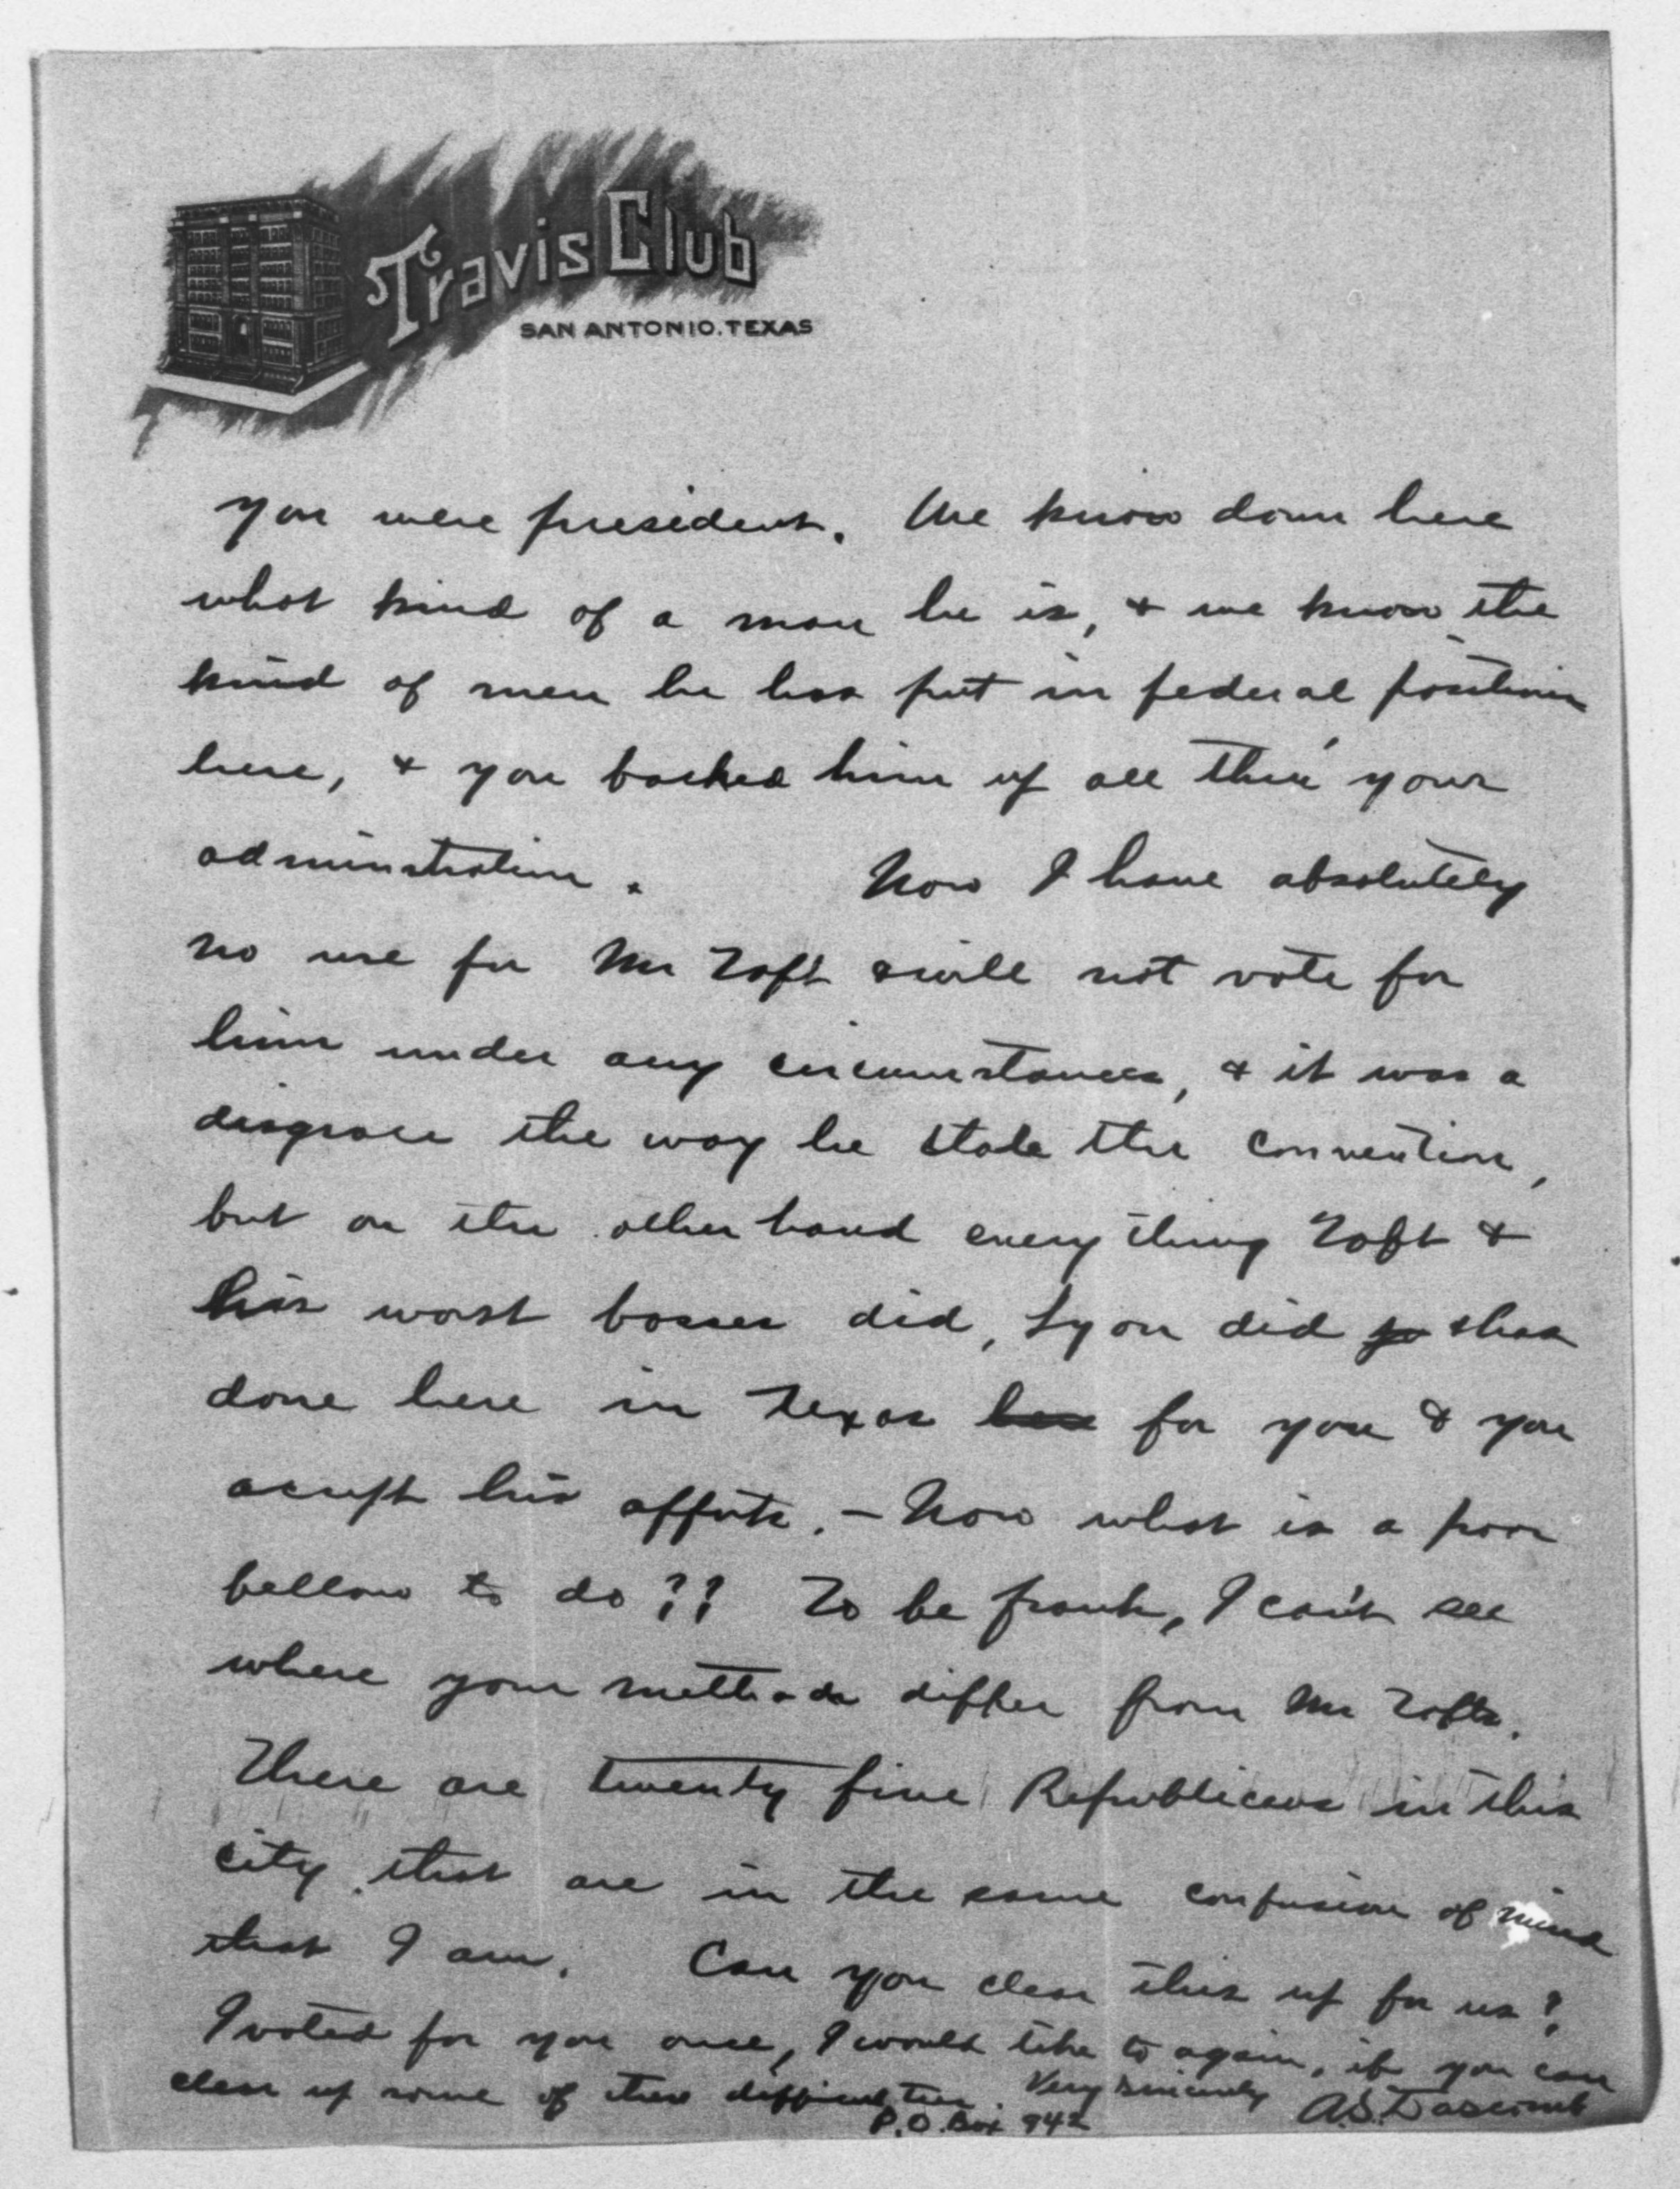 Travis Club
SAN ANTONIO. TEXAS
you were president. We know down here
what kind of a man he is, & we know the
kind of men he has put in federal positions
here, & you backed him up all thru' your
adminstration. Now I have absolutely
no use for Mr Taft & will not vote for
him under any circumstances, & it was a
disgrace the way he stole the convention,
but on the other hand every thing Taft &
his worst bosses did, Lyon did & has
done here in Texas for you & you
accept his efforts. — Now what is a poor
fellow to do?? To be frank, I can't see
where your methods differ from Mr Tafts.
There are twenty five Republicans in this
city that are in the same confusion of mind
that I am. Can you clear this up for us?
I voted for you once, I would like to again, if you can
clear up some of these difficulties. Very sincerely
P.O. Box 942 A.S. Dascomb